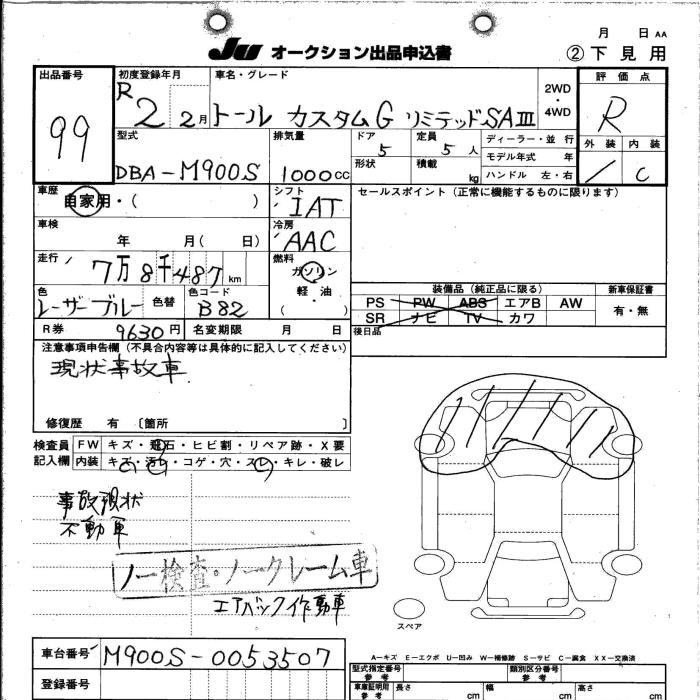 月 日 AA
JU オークション出品申込書 ②下見用
出品番号 初度登録年月 車名・グレード 2WD・4WD 評価点
99 R2 2月 トール カスタムG リミテッドSAⅢ R
型式 排気量 ドア 定員 ディーラー・並行 外装 内装
5 5人 モデル年式 年
DBA-M900S 1000cc 形状 積載 kg ハンドル 左・右 / C
車歴 自家用・( ) シフト IAT セールスポイント (正常に機能するものに限ります)
車検 年 月( 日) 冷房 AAC
走行 7万8千487km 燃料 ガソリン
軽・油
( )
色 レーザーブルー 色替 色コード B82
装備品 (純正品に限る) 新車保証書
PS PW ABS エアB AW 有・無
SR ナビ TV カワ
R券 9630円 名変期限 月 日 後日品
注意事項申告欄 (不具合内容等は具体的に記入してください)
現状事故車
修復歴 有 〔箇所 〕
検査員 FW キズ・飛石・ヒビ割・リペア跡・X要
記入欄 内装 キズ・汚レ・コゲ・穴・スレ・キレ・破レ
事故現状
不動車
ノー検査・ノークレーム車
エアバック作動車
スペア
A−キズ E−エクボ U−凹み W−補修跡 S−サビ C−腐食 XX−交換済
車台番号 M900S-0053507
型式指定番号 参考 類別区分番号 参考
登録番号 車庫証明用 参考 長さ cm 幅 cm 高 cm